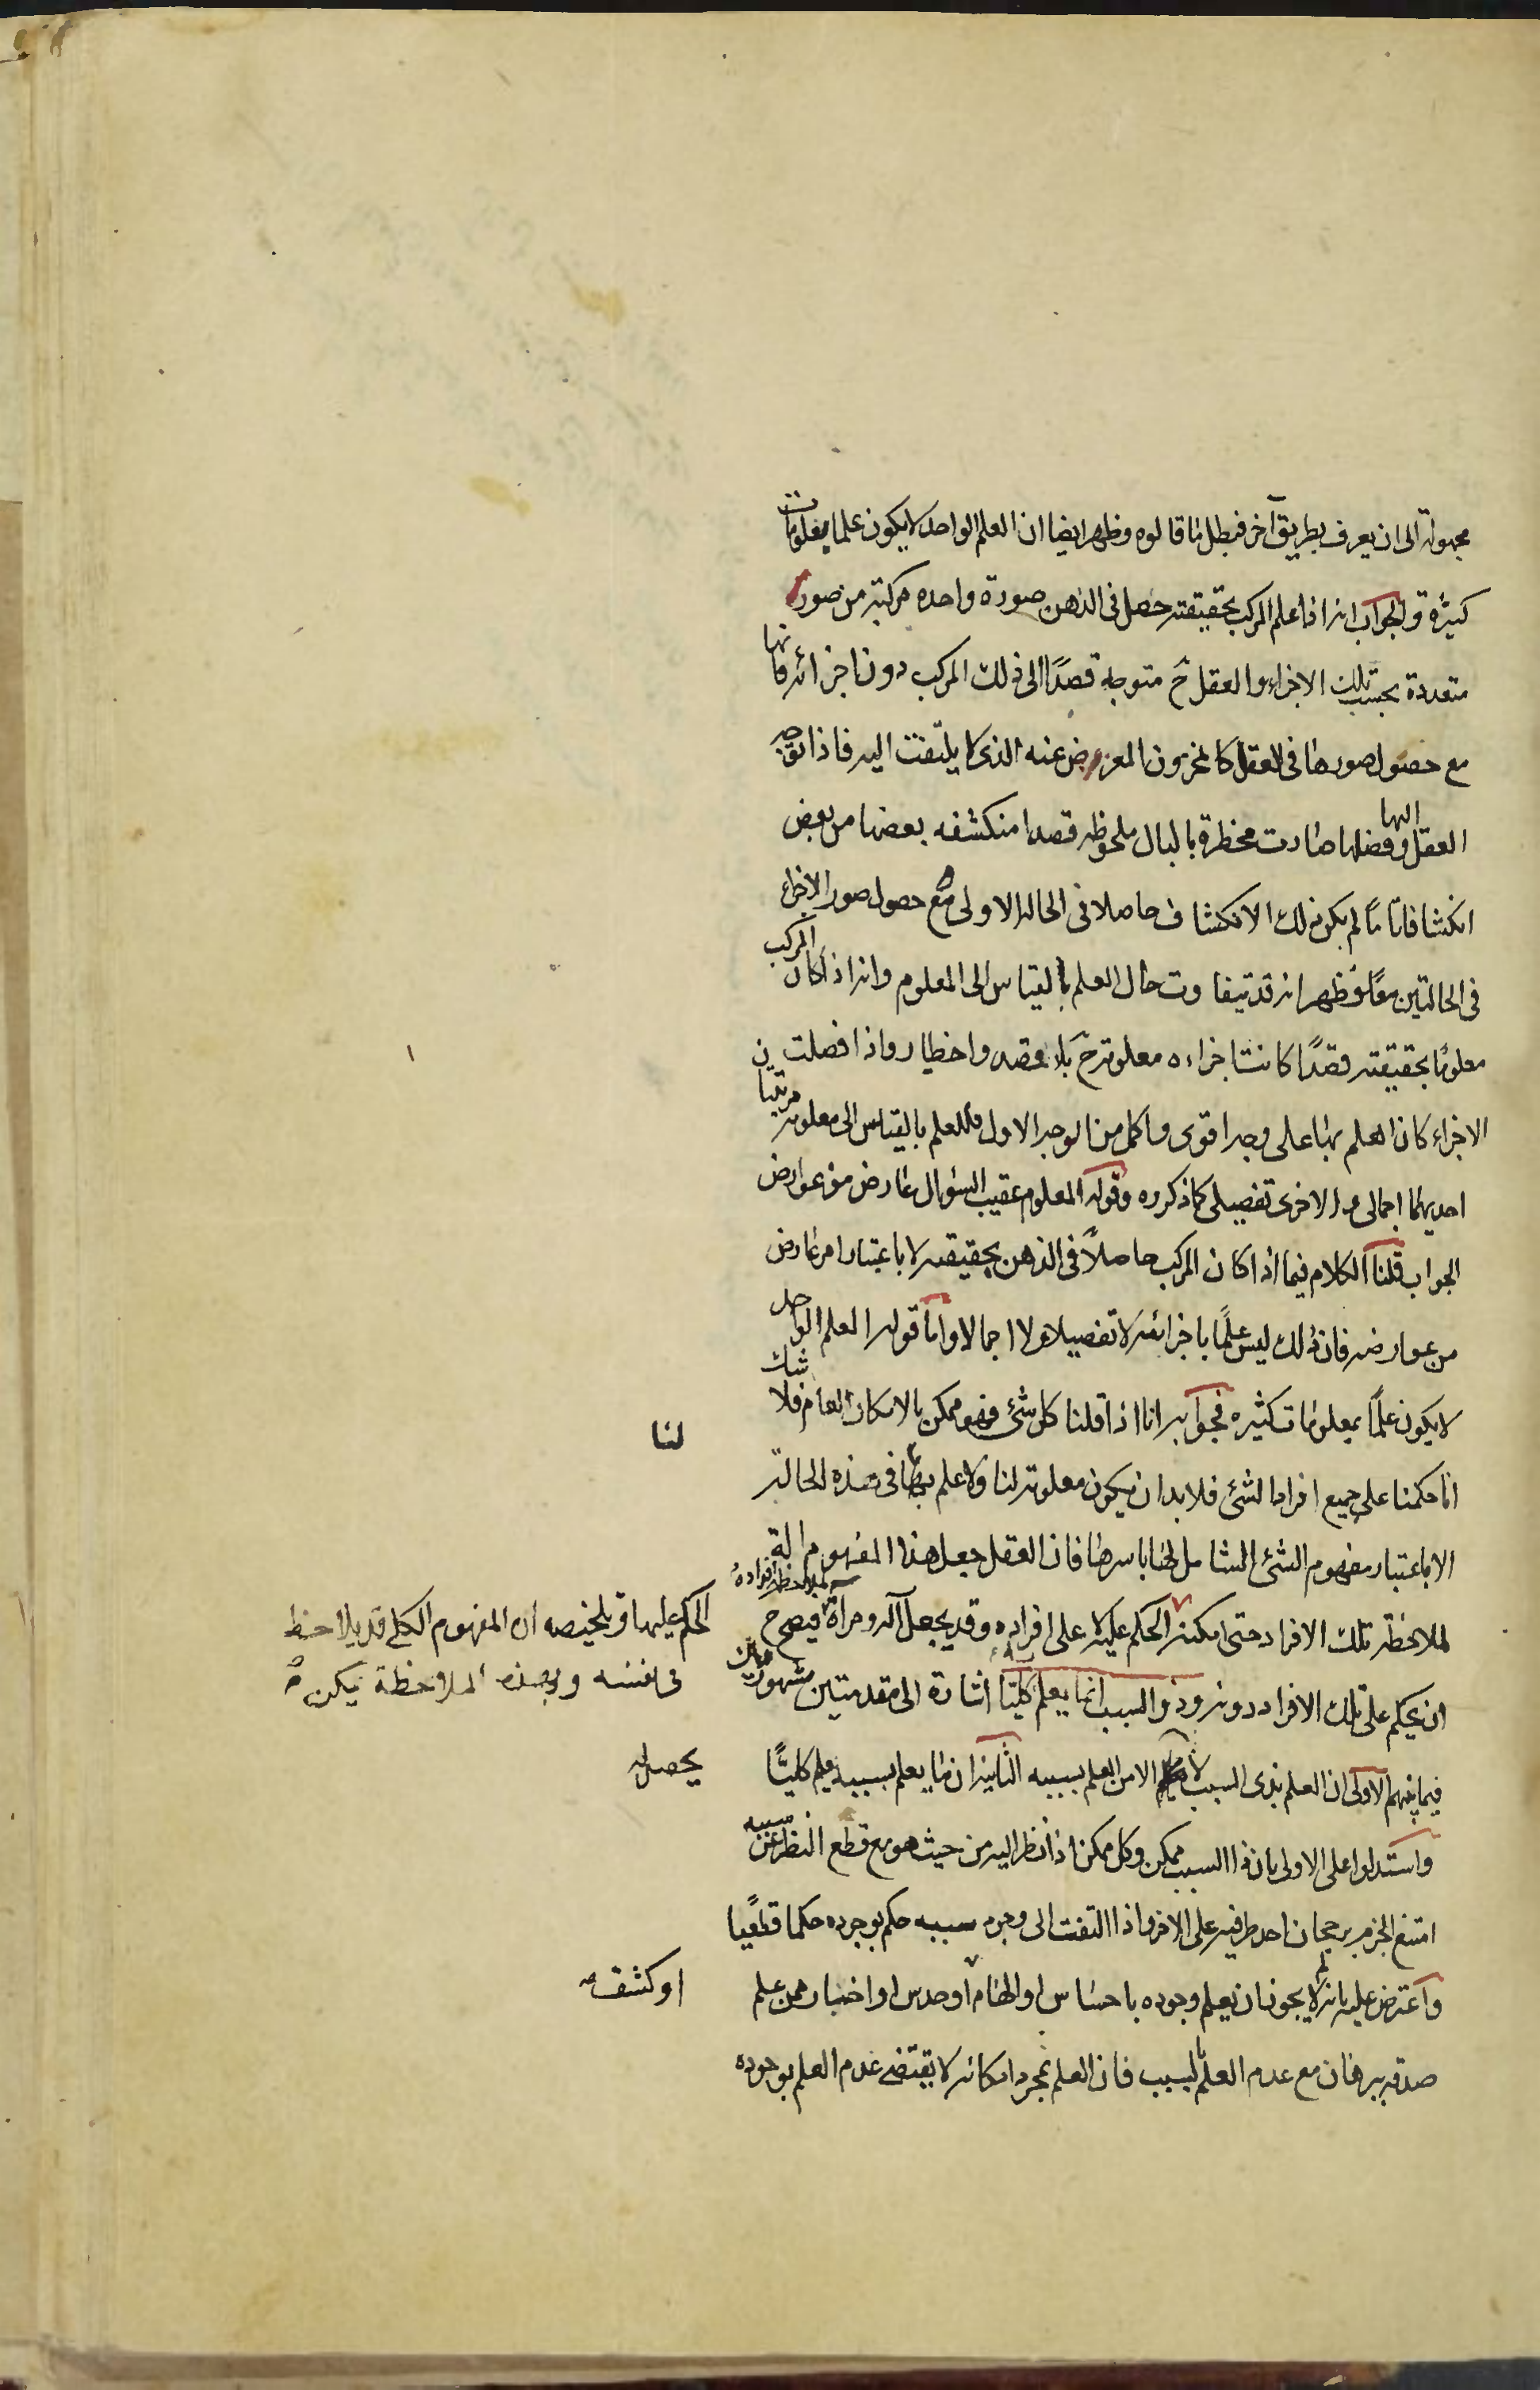 مجهولة الى ان يعرف بطريق آخر فبطل ما قالوه وظهر ايضا ان العلم الواحد لا يكون علما بمعلومات
كثيرة والجواب انه اذا علم المركب بحقيقته حصل فى الذهن صورة واحده مركبة من صور
متعددة بحسب تلك الاجزاء والعقل ح متوجه قصدًا الى ذلك المركب دون اجزائه فانها
مع حصول صورها فى العقل كالمخزون المعرض عنه الذى لا يلتفت اليه فاذا توجه
العقل اليها وفصلها صارت مخطرة بالبال ملحوظه قصدا منكشفه بعضها من بعض
انكشافا تامًا لم يكن ذلك الانكشاف حاصلا فى الحالة الاولى مع حصول صور الاجزاء
فى الحالتين معًا فظهر انه قد يتفاوت حال العلم بالقياس الى المعلوم وانه اذا كان المركب
معلومًا بحقيقته قصدًا كانت اجزاءه معلومة ح بلا قصد واخطار واذا فصلت
الاجزاء كان العلم بها على وجه اقوى واكمل من الوجه الاول فللعلم بالقياس الى معلومه مرتبتان
احديهما اجمالى والاخرى تفصيلى كما ذكروه وقوله المعلوم عقيب السؤال عارض من عوارض
الجواب قلنا الكلام فيما اذا كان المركب حاصلاً فى الذهن بحقيقته لا باعتبار امر عارض
من عوارضه فان ذلك ليس علمًا باجزائه لا تفصيلا ولا اجمالا واما قوله العلم الواحد
لا يكون علمًا بمعلومات كثيره فجوابه انا اذا قلنا كل شئ فهو ممكن بالامكان العام فلا شك
لنا
انا حكمنا على جميع افراد الشئ فلا بد ان يكون معلومة لنا ولا علم بها فى هذه الحالة
الا باعتبار مفهوم الشئ الشامل لها باسرها فان العقل جعل هذا المفهوم الة
لملاحظة افراده
لملاحظة تلك الافراد حتى امكنه الحكم عليه لا على افراده وقد يجعل آلة ومرآة فيصح ح
الحكم عليها وتلخيصه ان المفهوم الكلى قد يلاحظ
فى نفسه وبهذه الملاحظة يمكن
ان يحكم على تلك الافراد دونه وذو السبب انما يعلم كليًا اشارة الى مقدمتين مشهورتين
فيما بينهم الاولى ان العلم بذى السبب لا الا من العلم بسببه الثانية ان ما يعلم بسببه يعلم كليًّا
يحصل
واستدلوا على الاولى بان ذا السبب ممكن وكل ممكن اذا نظر اليه من حيث هو مع قطع النظر عن سببه
امتنع الجزم برجحان احد طرفيه على الاخر واذا التفت الى وجود سببه حكم بوجوده حكما قطعيًا
واعترض عليه بانه لم لا يجوز ان يعلم وجوده باحساس او الهام او حدس او اخبار ممن علم
او كشف
صدقه ببرهان مع عدم العلم بالسبب فان العلم بمجرد امكانه لا يقتضى عدم العلم بوجوده